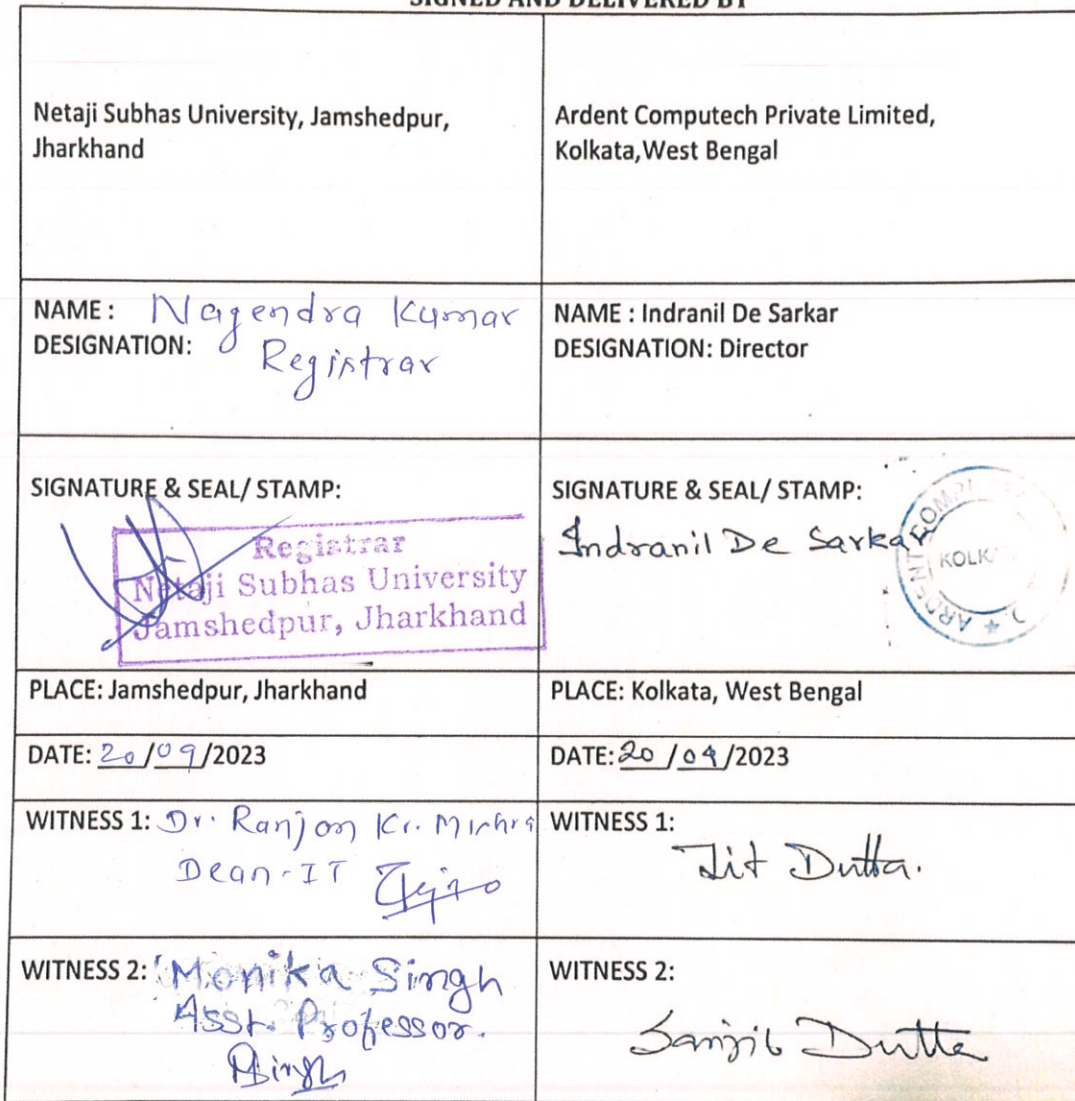 SIGNED AND DELIVERED BY
Netaji Subhas University, Jamshedpur,
Jharkhand
Ardent Computech Private Limited,
Kolkata,West Bengal
NAME : Nagendra Kumar
DESIGNATION: Registrar
NAME : Indranil De Sarkar
DESIGNATION: Director
SIGNATURE & SEAL/ STAMP:
Registrar
Netaji Subhas University
Jamshedpur, Jharkhand
SIGNATURE & SEAL/ STAMP:
Indranil De Sarkar
ARDENT COMP
KOLK
PLACE: Jamshedpur, Jharkhand
PLACE: Kolkata, West Bengal
DATE: 20/09/2023
DATE: 20/09/2023
WITNESS 1: Dr. Ranjan Kr. Mishra
Dean-IT
WITNESS 1:
Jit Dutta.
WITNESS 2: Monika Singh
Asst. Professor.
Singh
WITNESS 2:
Sanjib Dutta